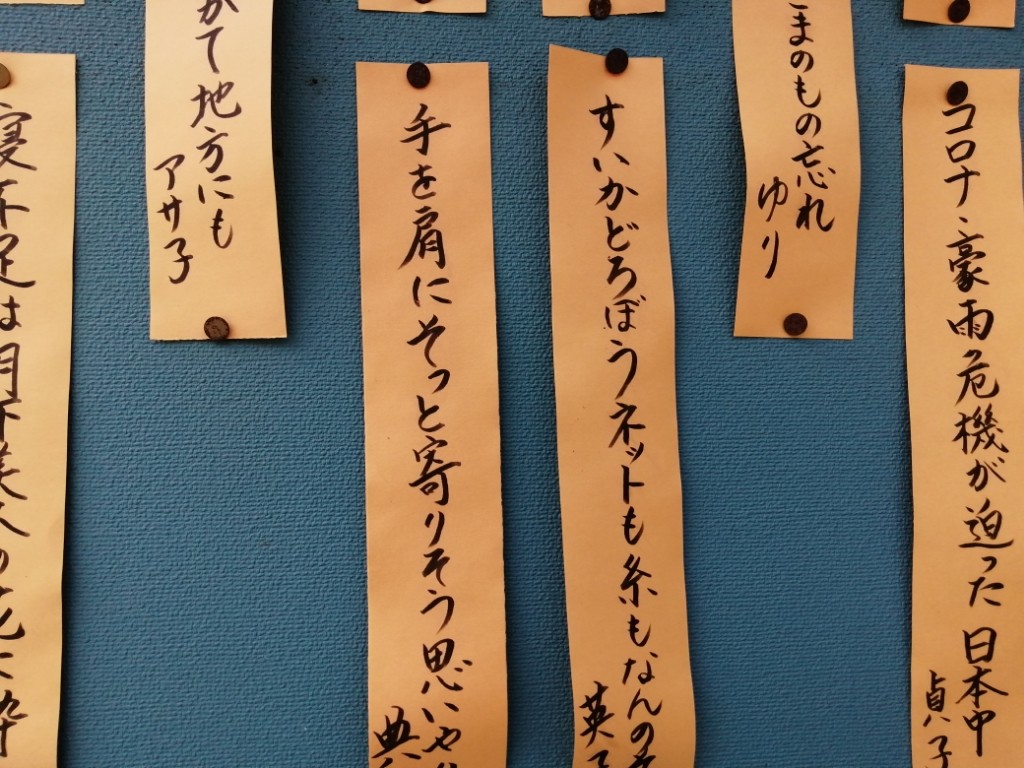 コロナ、豪雨の危機が迫った 日本中
貞子
まのもの忘れ
ゆり
すいかどろぼうネットも糸もなんのそ
英子
手を肩にそっと寄りそう思いや
典
て地方にも
アサ子
寝不足は月下美人の花に酔